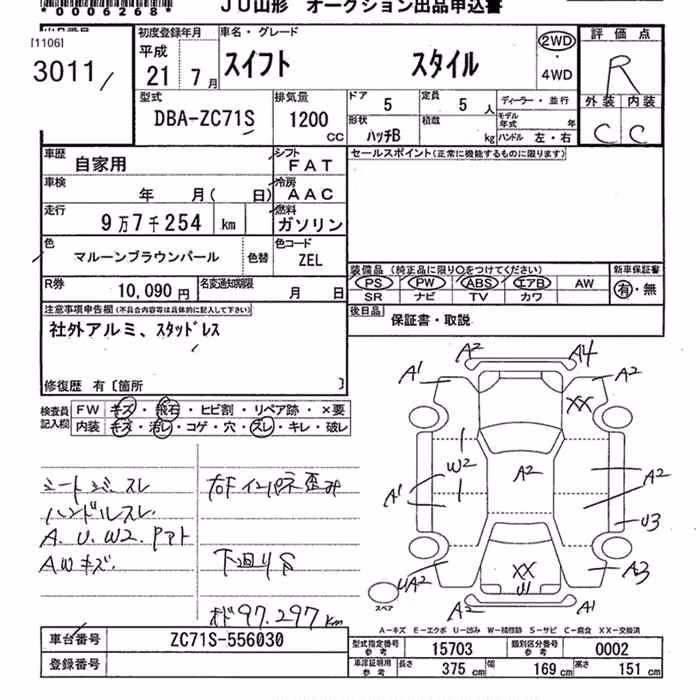 *0006268*
JU山形 オークション出品申込書
[1106]
3011
初度登録年月
平成
21年 7月
車名・グレード
スイフト スタイル
2WD
・
4WD
評価点
R
外装 内装
C C
型式
DBA-ZC71S
排気量
1200 CC
ドア 5
定員 5 人
形状 ハッチB
積載 kg
ディーラー・並行
モデル年式 年
ハンドル 左・右
車歴 自家用
シフト FAT
車検 年 月( 日)
冷房 AAC
走行 9万7千254 km
燃料 ガソリン
色 マルーンブラウンパール 色替
色コード ZEL
R券 10,090円
名変通知期限 月 日
セールスポイント(正常に機能するものに限ります)
装備品 (純正品に限り○をつけてください)
PS PW ABS エアB AW
SR ナビ TV カワ
新車保証書
有・無
後日品 保証書・取説
注意事項申告欄(不具合内容等は具体的に記入して下さい)
社外アルミ、スタッドレス
修復歴 有〔箇所 〕
検査員記入欄
FW キズ・飛石・ヒビ割・リペア跡・×要
内装 キズ・汚レ・コゲ・穴・スレ・キレ・破レ
ハンドルスレ
A. U. W2.
AWキズ.
右Fインパネ歪み
下回りS
97.297km
A2 A4
A1 A2
XX
W2
A2
A1 A2
U3
UA2 XX A3
U1
スペア
A2 A1
A-キズ E-エクボ U-凹み W-補修跡 S-サビ C-腐食 XX-交換済
車台番号 ZC71S-556030
登録番号
型式指定番号参考 15703
類別区分番号参考 0002
車庫証明用参考 長さ 375 cm 幅 169 cm 高さ 151 cm